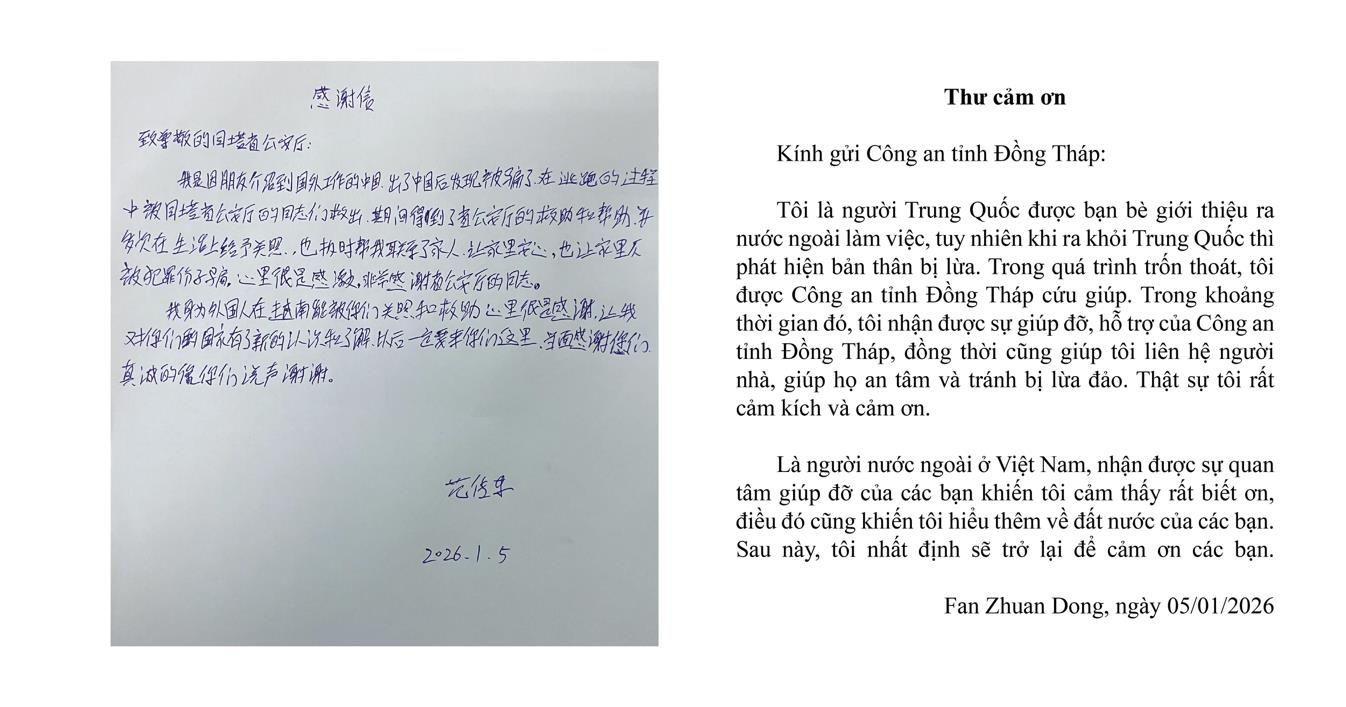 感谢信
致尊敬的同塔省公安厅:
我是因朋友介绍到国外工作的中国.出了中国后发现被骗了.在逃跑的过程
中被同塔省公安厅的同志们救出.期间得到了省公安厅的救助和帮助.并
多次在生活上给予关照.,也及时帮我联系了家人.让家里安心,也让家里不
被犯罪份子骗.心里很是感激,非常感谢省公安厅的同志。
我身为外国人在越南能被你们关照和救助心里很是感谢.让我
对你们的国家有了新的认识和了解.以后一定要来你们这里.当面感谢你们.
真诚的给你们说声谢谢。
2026.1.5
Thư cảm ơn
Kính gửi Công an tỉnh Đồng Tháp:
Tôi là người Trung Quốc được bạn bè giới thiệu ra
nước ngoài làm việc, tuy nhiên khi ra khỏi Trung Quốc thì
phát hiện bản thân bị lừa. Trong quá trình trốn thoát, tôi
được Công an tỉnh Đồng Tháp cứu giúp. Trong khoảng
thời gian đó, tôi nhận được sự giúp đỡ, hỗ trợ của Công an
tỉnh Đồng Tháp, đồng thời cũng giúp tôi liên hệ người
nhà, giúp họ an tâm và tránh bị lừa đảo. Thật sự tôi rất
cảm kích và cảm ơn.
Là người nước ngoài ở Việt Nam, nhận được sự quan
tâm giúp đỡ của các bạn khiến tôi cảm thấy rất biết ơn,
điều đó cũng khiến tôi hiểu thêm về đất nước của các bạn.
Sau này, tôi nhất định sẽ trở lại để cảm ơn các bạn.
Fan Zhuan Dong, ngày 05/01/2026